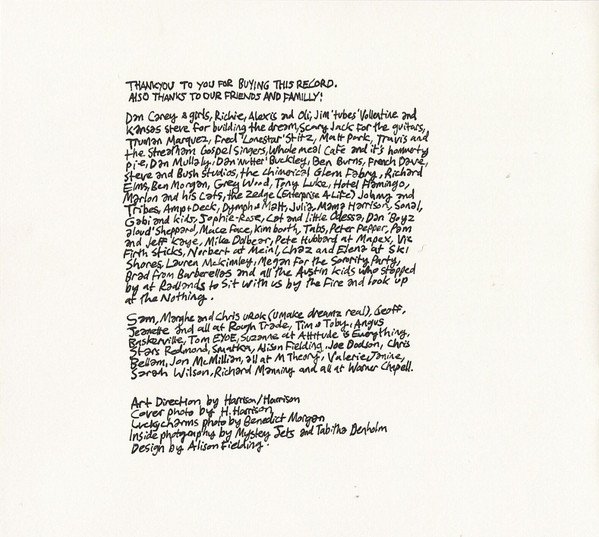 THANKYOU TO YOU FOR BUYING THIS RECORD.
ALSO THANKS TO OUR FRIENDS AND FAMILLY!
Dan Carey & girls, Richie, Alexis and Oli, Jim 'tubes' Vollentine and
Kansas Steve for building the dream, Scary Jack for the guitars,
Truman Marquez, Fred 'Lonestar' Stitz, Matt Park, Travis and
the Streatham Gospel Singers, Whole meal Cafe and it's hommity
pie, Dan Mullaly, Dan 'nutter' Buckley, Ben Burns, French Dave,
Steve and Bush Studios, the chimerical Glenn Fabry, Richard
Elms, Ben Morgan, Greg Wood, Tony Luke, Hotel Flamingo,
Marlon and his Cats, the Zedge (Enterprise 4 Life) Johnny and
Tribes, Amp & Deck, Dymph & Matt, Julia, Mama Harrison, Sonal,
Gabi and kids, Sophie-Rose, Cat and little Odessa, Dan 'Boyz
aloud' Sheppard, Mace Face, Kim booth, Tabs, Peter Pepper, Pam
and Jeff Kaye, Mike Dolbear, Pete Hubbard at Mapex, Vic
Firth Sticks, Norbert at Meinl, Chaz and Elena at Ski
Shores, Lauren McKimley, Megan for the Sorority Party,
Brad from Barberellas and all the Austin kids who stopped
by at Radlands to Sit with us by the Fire and look up
at the Nothing.
Sam, Marghe and Chris uRok (U make dreamz real), Geoff,
Jeanette and all at Rough Trade, Tim & Toby, Angus
Baskerville, Tom EYOE, Suzanne at Attitude is Everything,
Stars Redmond, Smartka, Alison Fielding, Joe Dodson, Chris
Bellam, Jon McMillian, all at M Theory, Valerie, Janine,
Sarah Wilson, Richard Manning and all at Warner Chapell.
Art Direction by Harrison/Harrison
Cover photo by H. Harrison
Luckycharms photo by Benedict Morgan
Inside photgraphy by Mystey Jets and Tabitha Denholm
Design by Alison Fielding.